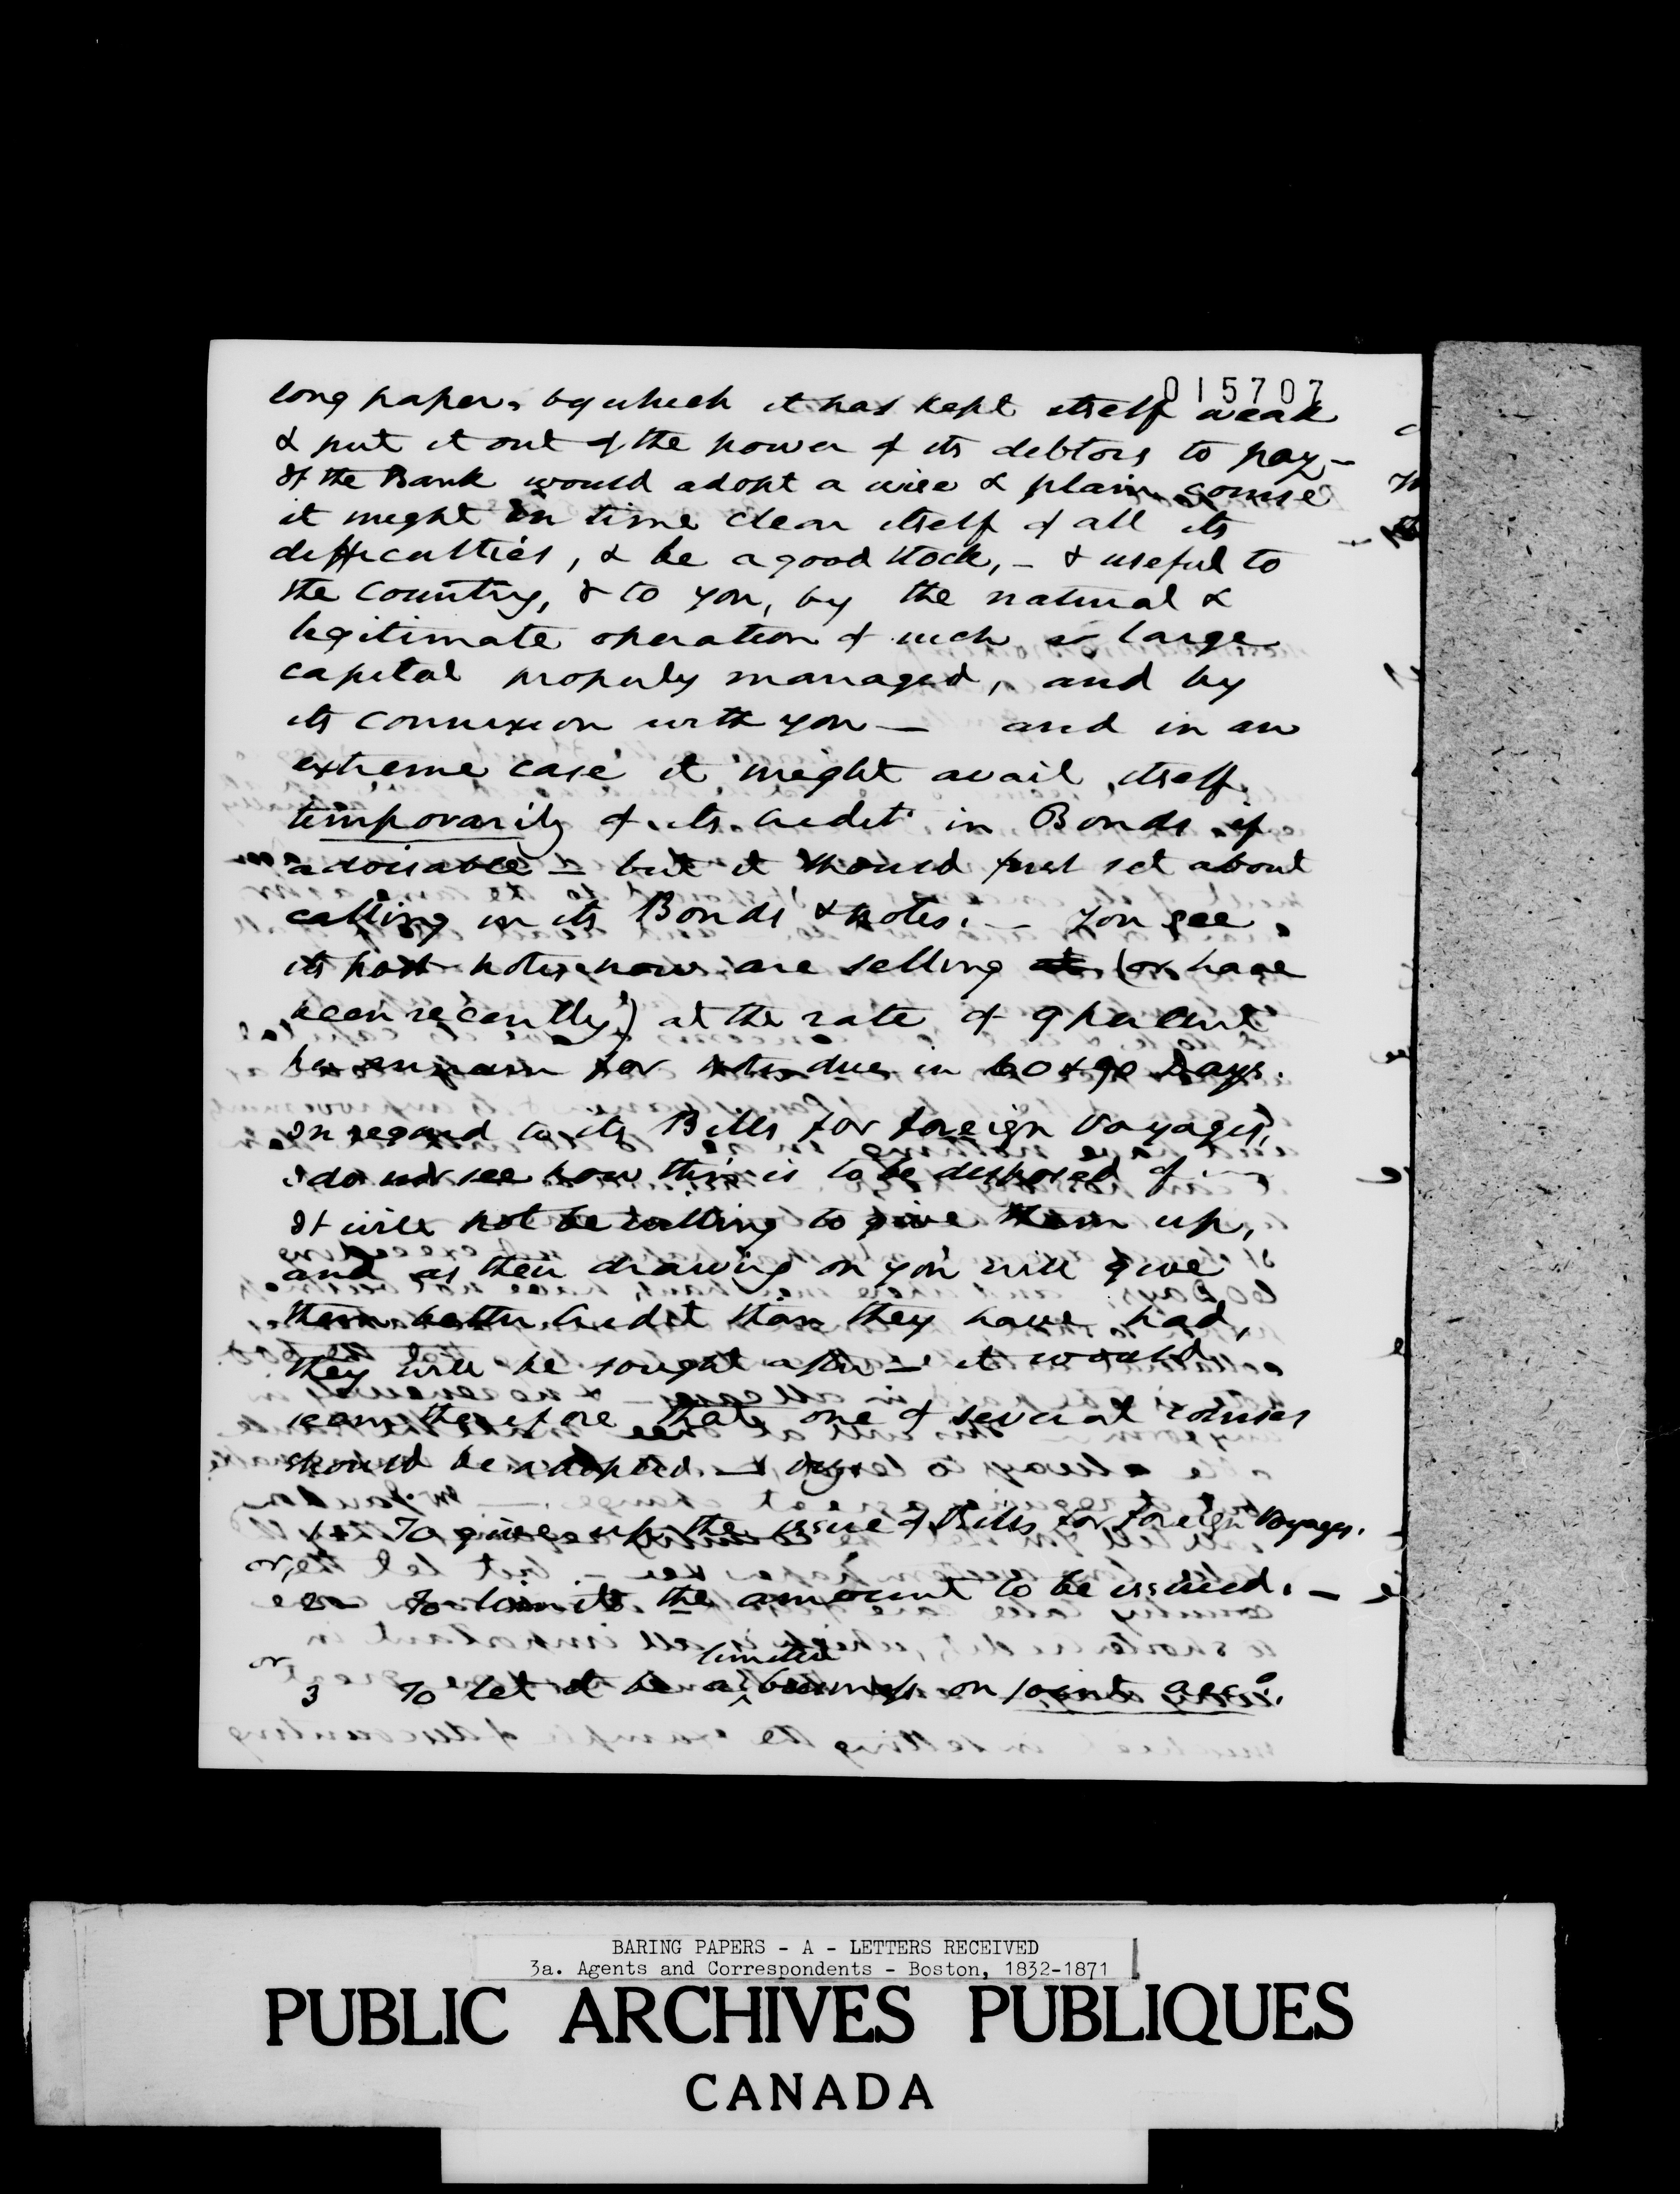 015707
long paper, by which it has kept itself weak
& put it out of the power of its debtors to pay –
If the Bank would adopt a wise & plain course
it might in time clear itself of all its
difficulties, & be a good stock, – & useful to
the country, & to you, by the natural &
legitimate operation of such a large
capital properly managed, and by
its connexion with you — and in an
extreme case it might avail itself
temporarily of its credit in Bonds if
advisable – but it should first set about
calling in its Bonds & notes. – You see
its post notes now are selling at (or have
been recently) at the rate of 9 per cent
per annum for notes due in 60 & 90 Days.
In regard to its Bills for foreign Voyages,
I do not see how this is to be disposed of –
It will not be willing to give them up,
and as their drawing on you will give
them better credit than they have had,
they will be sought after – it would
seam therefore that one of several courses
should be adopted –
1st To give up the issue of Bills for foreign Voyages.
or,
2 – To limit the amount to be issued. –
or
limited
3 To let it be a business on joint acco.
BARING PAPERS - A - LETTERS RECEIVED
3a. Agents and Correspondents - Boston, 1832-1871
PUBLIC ARCHIVES PUBLIQUES
CANADA